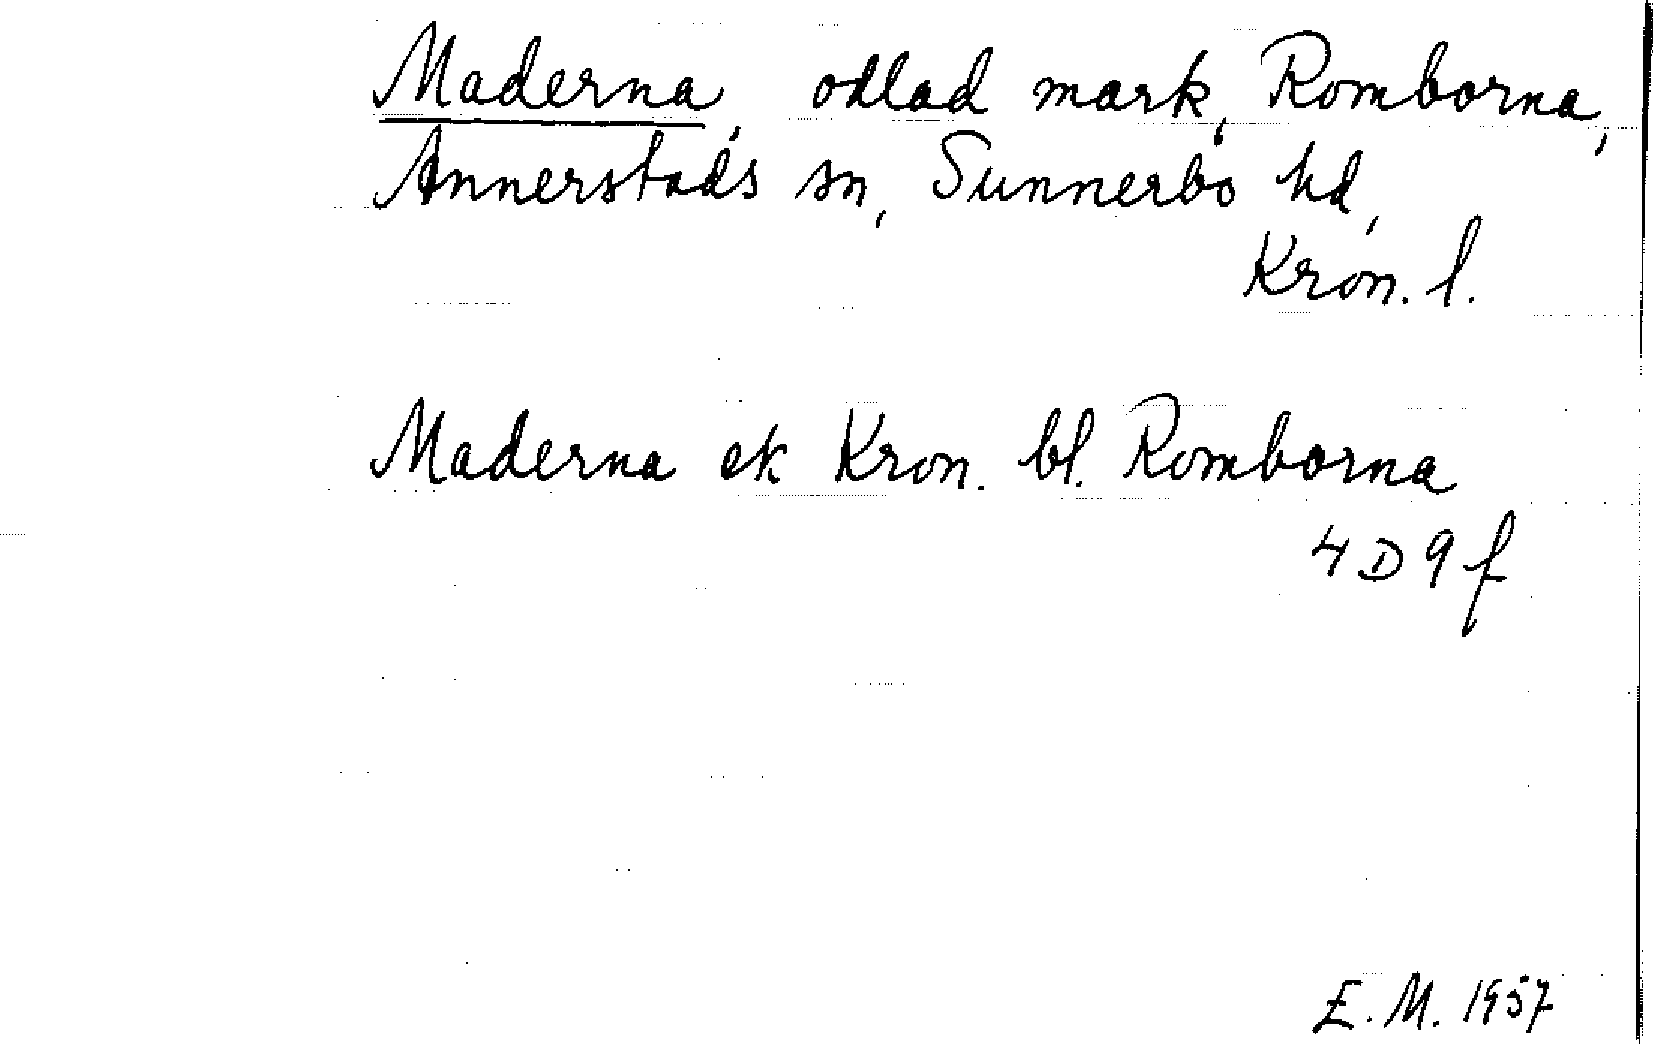 Maderna, odlad mark, Romborna,
Annerstads sn, Sunnerbo hd,
Kron. l.
Maderna ek Kron. bl. Romborna
4D9f
E. M. 1957